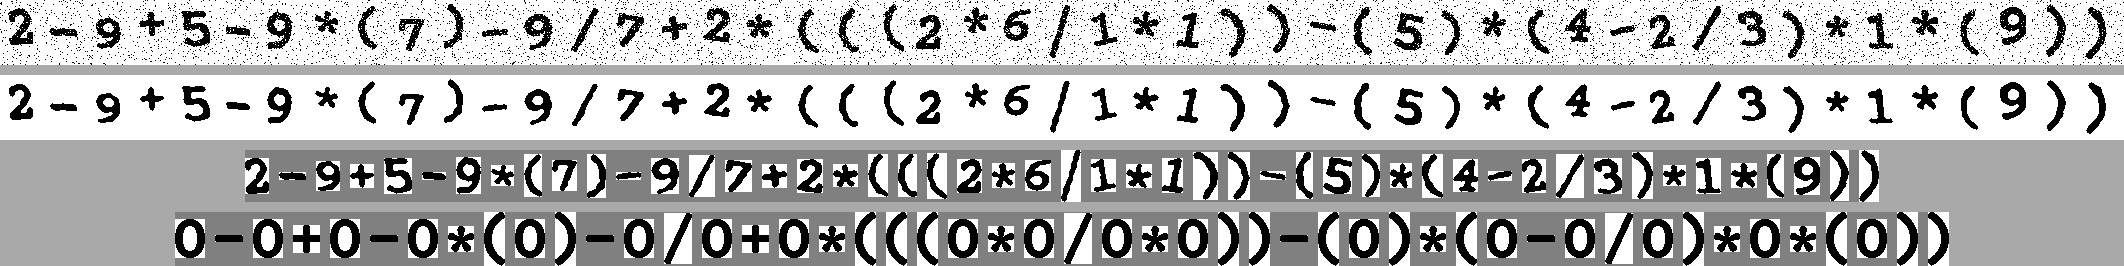 2-9+5-9*(7)-9/7+2*(((2*6/1*1))-(5)*(4-2/3)*1*(9))
2-9+5-9*(7)-9/7+2*(((2*6/1*1))-(5)*(4-2/3)*1*(9))
2-9+5-9*(7)-9/7+2*(((2*6/1*1))-(5)*(4-2/3)*1*(9))
0-0+0-0*(0)-0/0+0*(((0*0/0*0))-(0)*(0-0/0)*0*(0))